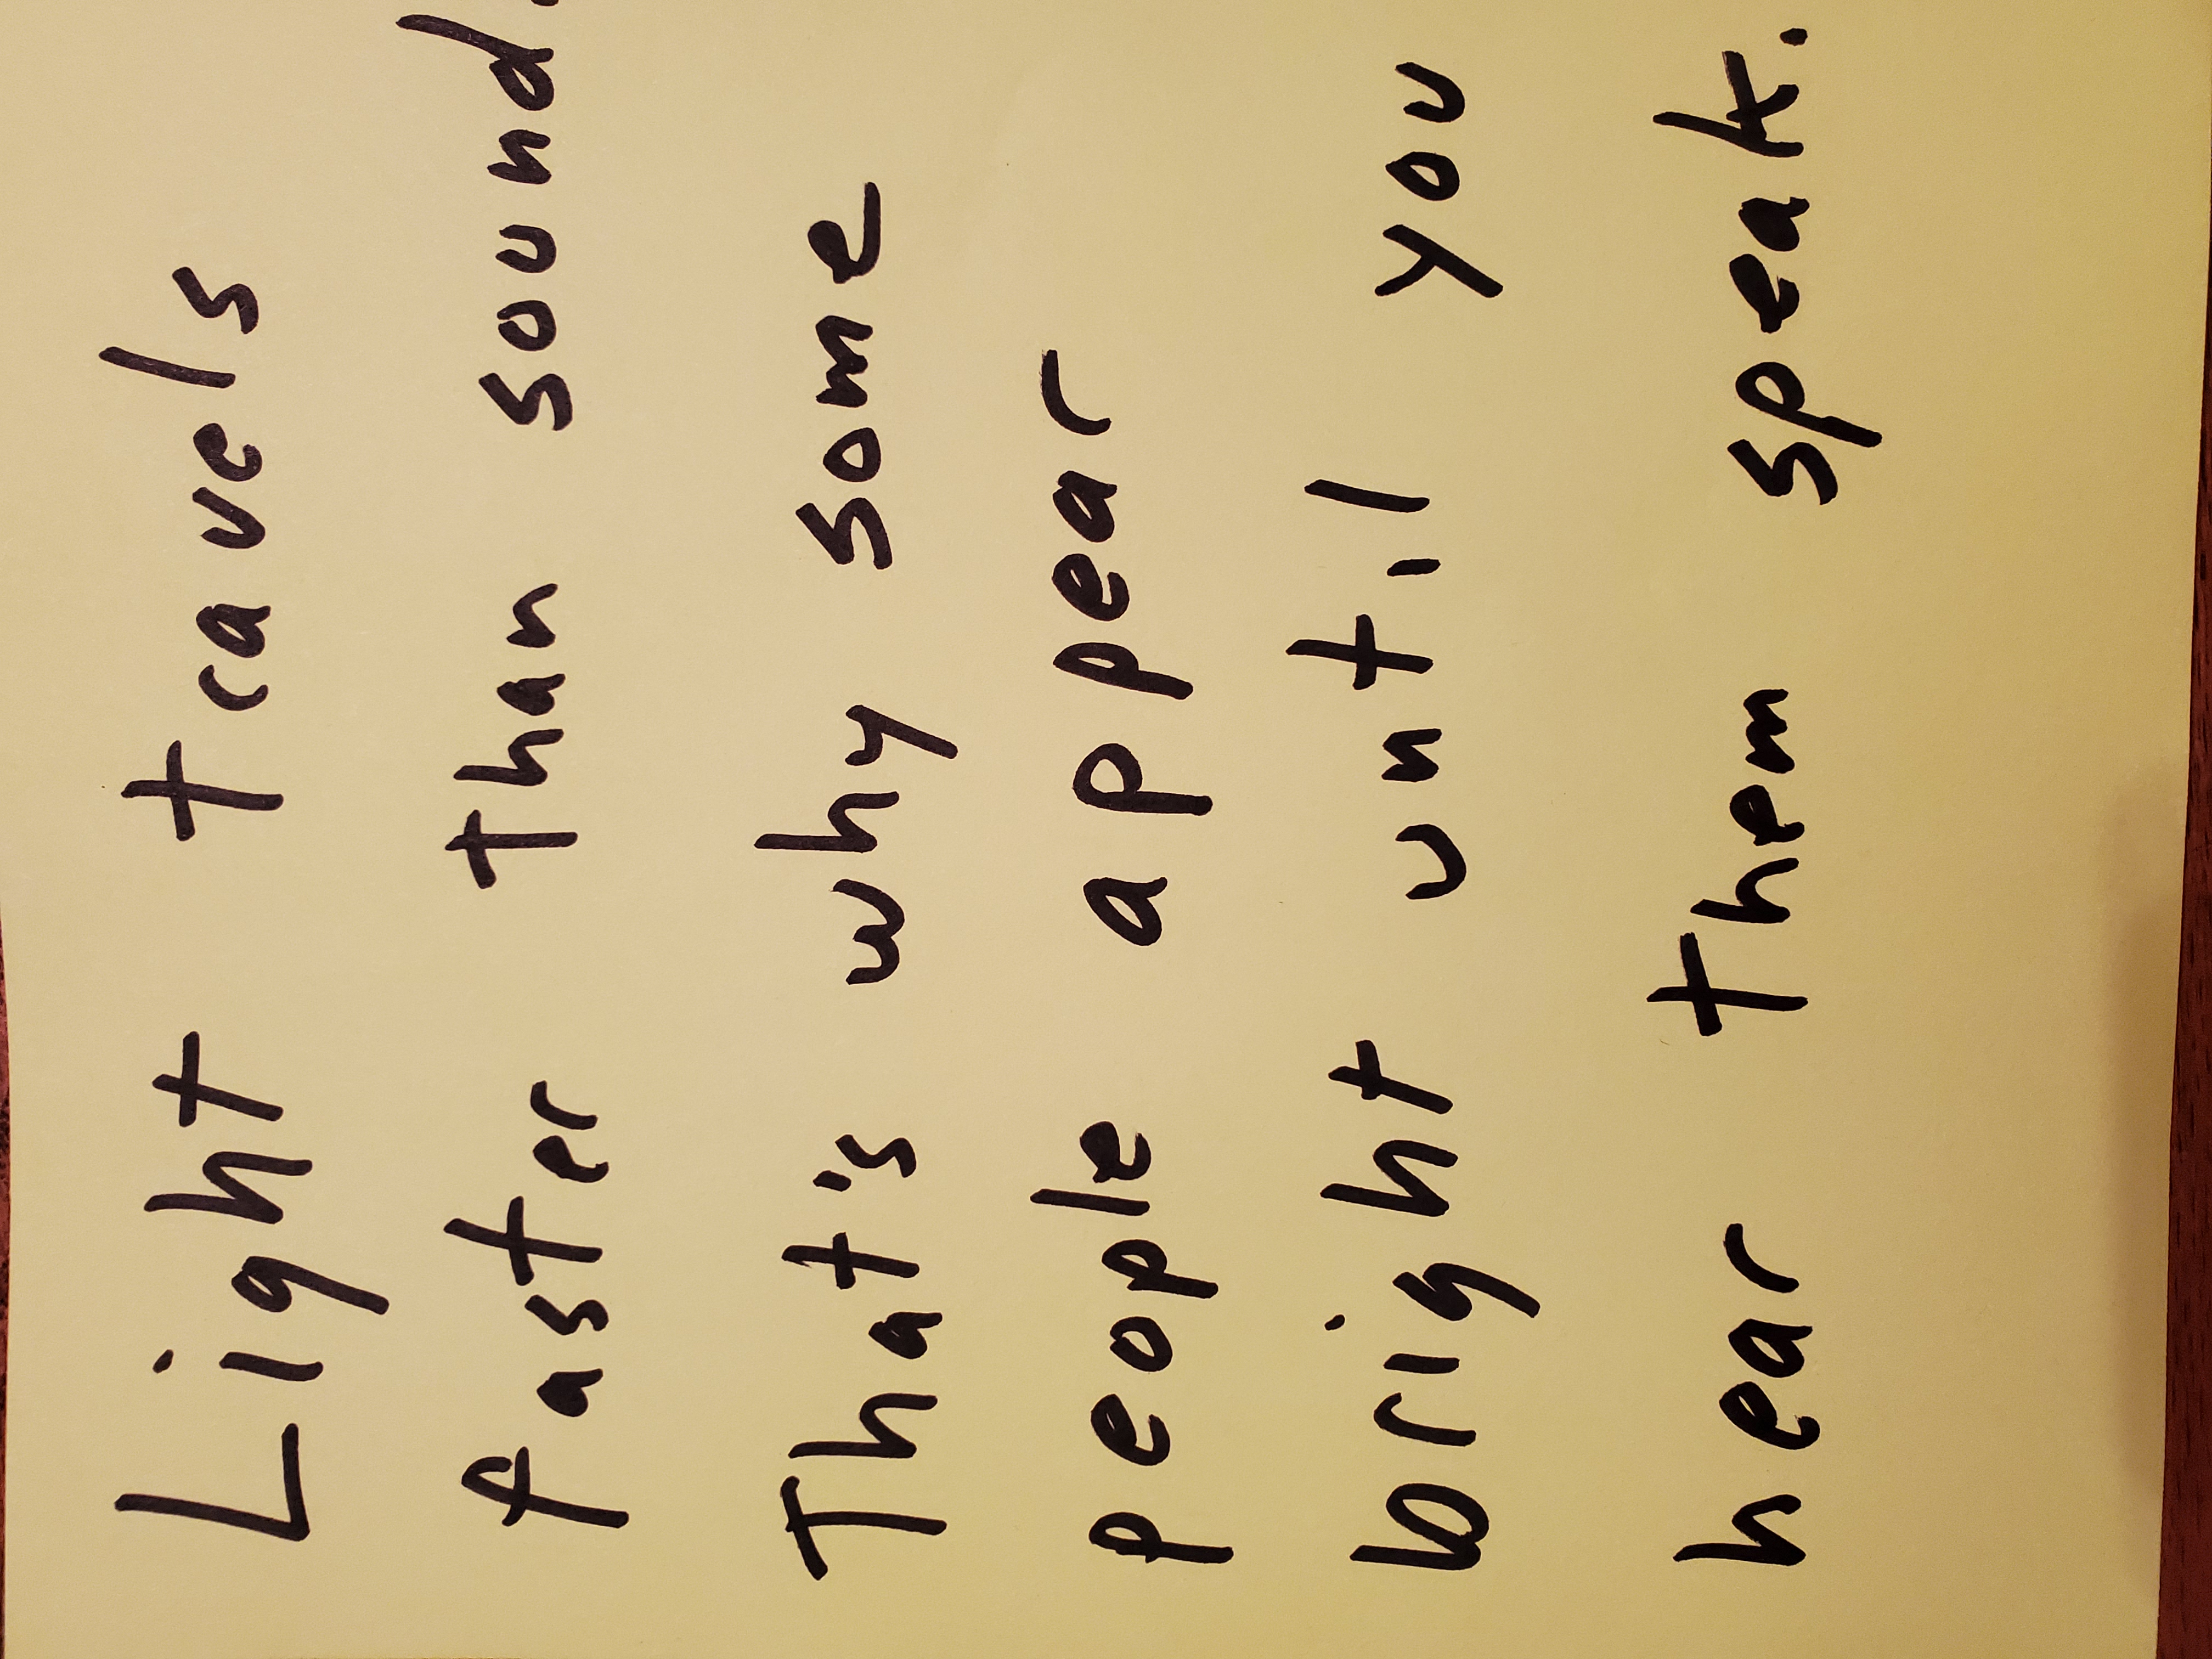 Light travels
faster than sound.
That's why some
people appear
bright until you
hear them speak.